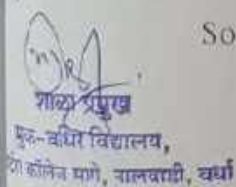 So
शाळा प्रमुख
मुक-बधिर विद्यालय,
कॉलेज मागे, वर्धा